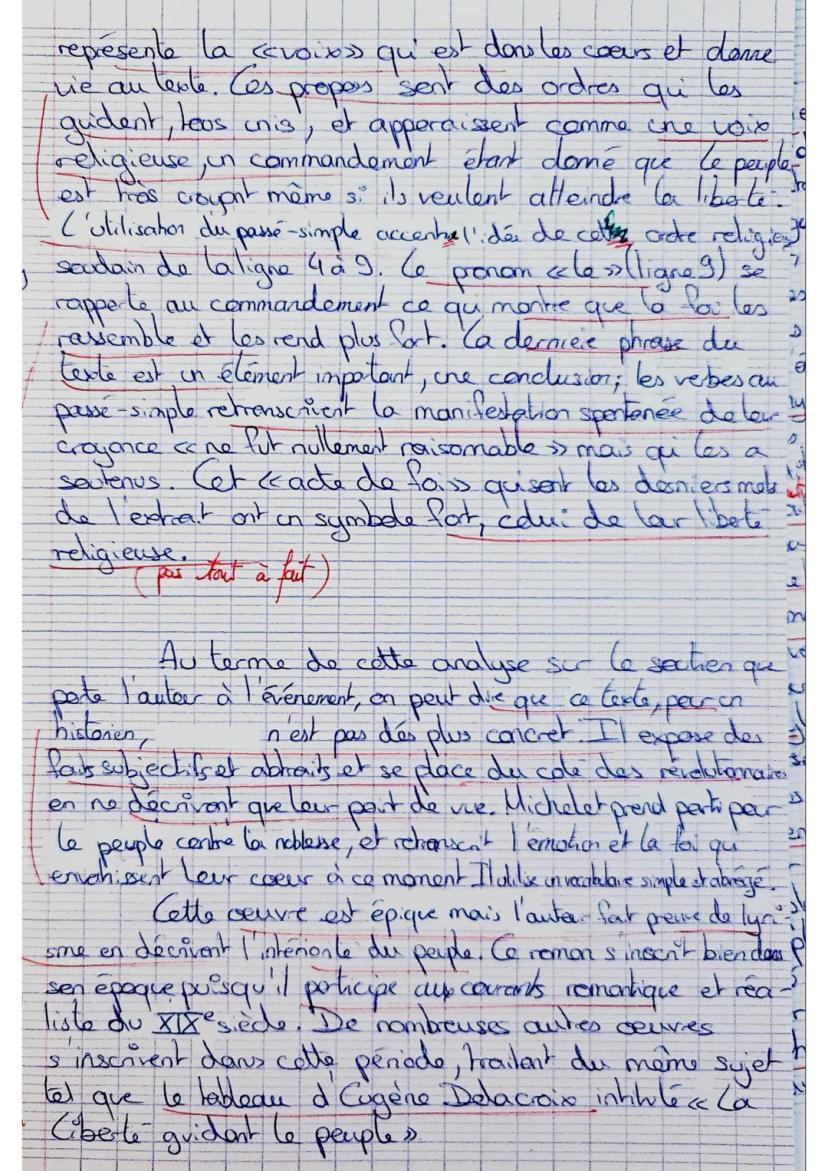 représente la «voix» qui est dans les coeurs et donne
vie au texte. Ces propos sont des ordres qui les
guident, tous unis, et apparaissent comme une voix
religieuse, un commandement étant donné que le peuple
est très croyant même si ils veulent atteindre la liberté.
L'utilisation du passé-simple accentue l'idée de cet ordre religieux
soudain de la ligne 4 à 9. Le pronom «le» (ligne 9) se
rapporte au commandement ce qui montre que la foi les
rassemble et les rend plus fort. La dernière phrase du
texte est un élément important, une conclusion; les verbes au
passé-simple retranscrivent la manifestation spontanée de leur
croyance «ne fut nullement raisonnable» mais qui les a
soutenus. Cet «acte de foi» qui sont les derniers mots
de l'extrait ont un symbole fort, celui de leur liberté
religieuse.
(pas tout à fait)
Au terme de cette analyse sur le soutien que
porte l'auteur à l'événement, on peut dire que ce texte, pour un
historien, n'est pas des plus concret. Il expose des
faits subjectifs et abtraits et se place du coté des révolutionnaires
en ne décrivant que leur point de vue. Michelet prend parti pour
le peuple contre la noblesse, et retranscrit l'émotion et la foi qui
envahissent leur coeur à ce moment Il utilise un vocabulaire simple et abrégé.
Cette oeuvre est épique mais l'auteur fait preuve de lyri-
sme en décrivent l'intériorité du peuple. Ce roman s'inscrit bien dans
son époque puisqu'il participe aux courants romantique et réa-
liste du XIXe siècle. De nombreuses autres oeuvres
s'inscrivent dans cette période, traitant du même sujet
tel que le tableau d'Eugène Delacroix intitulé «La
Liberté guidant le peuple».